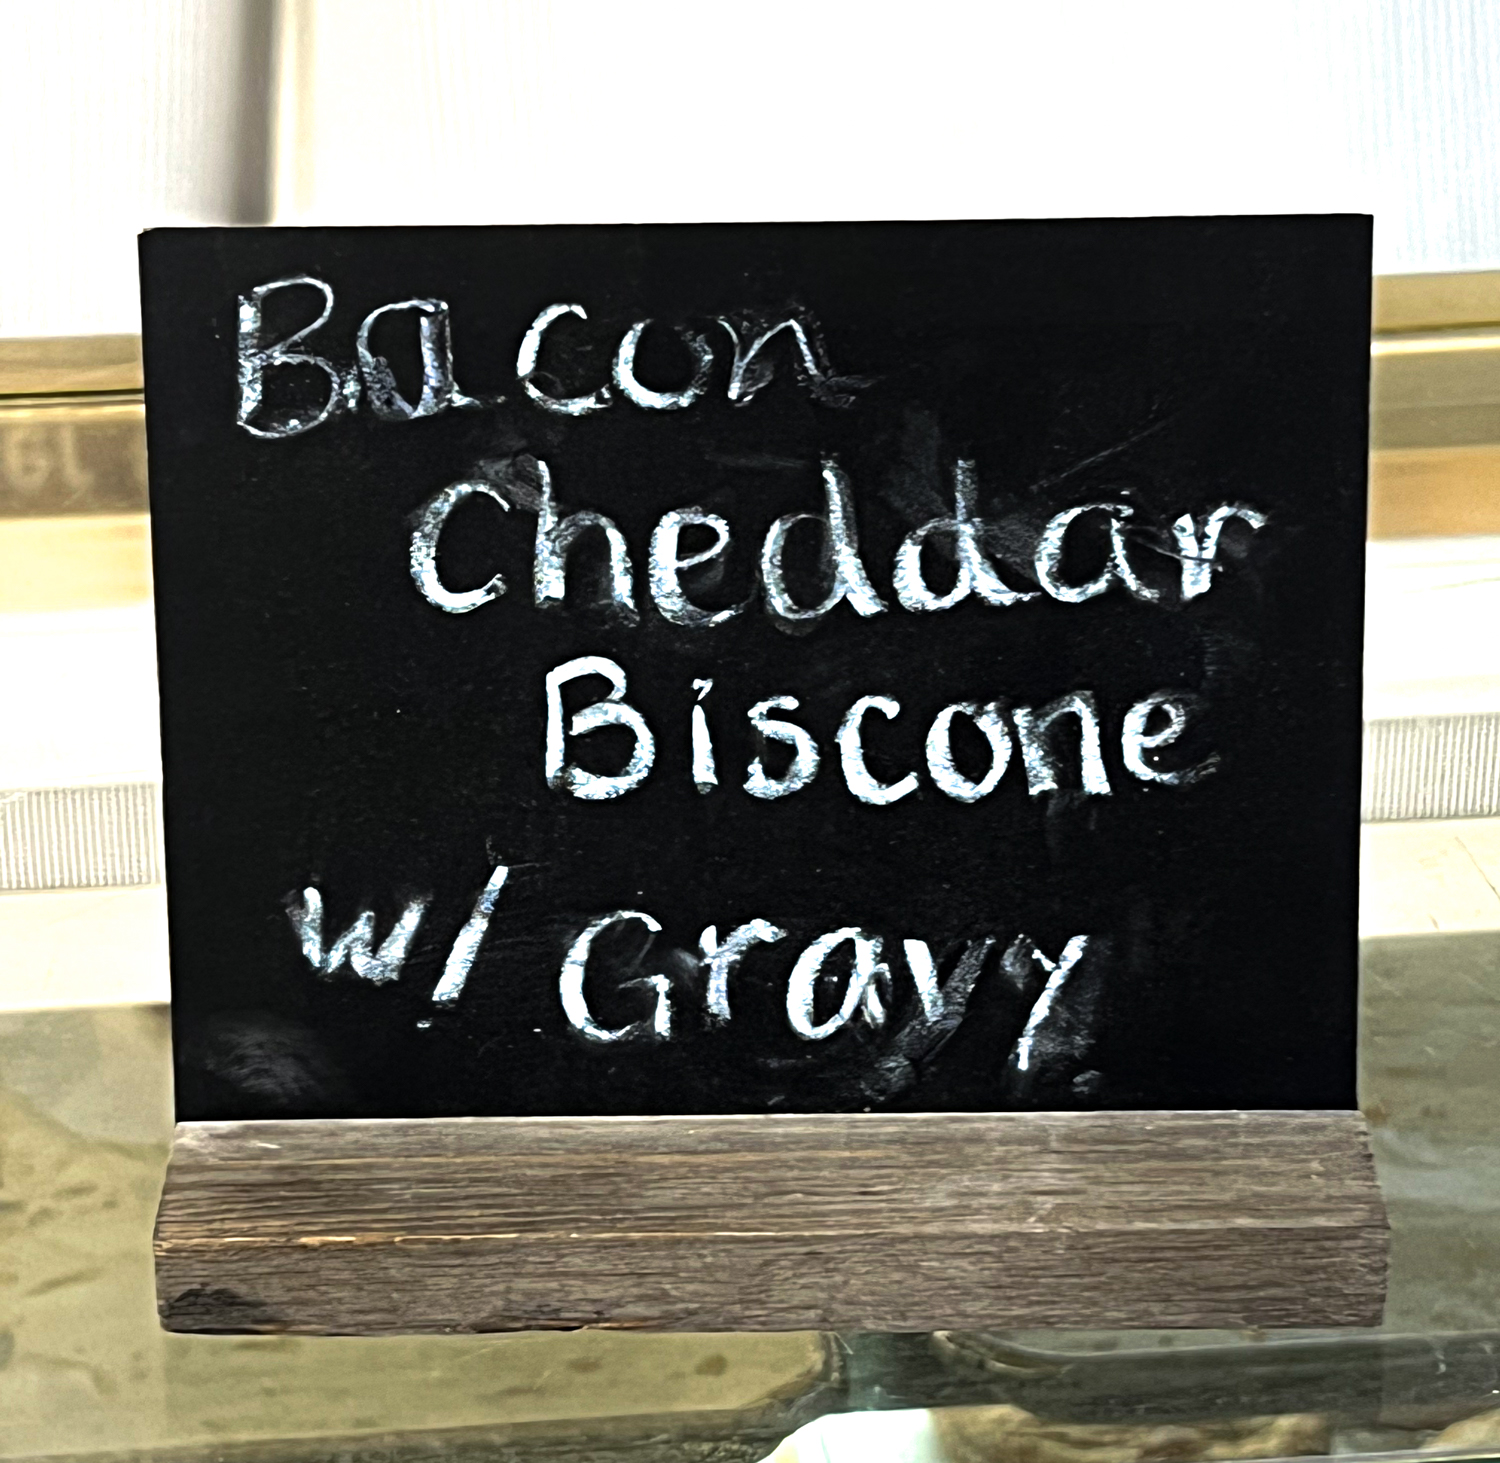 Bacon
Cheddar
Biscone
w/ Gravy